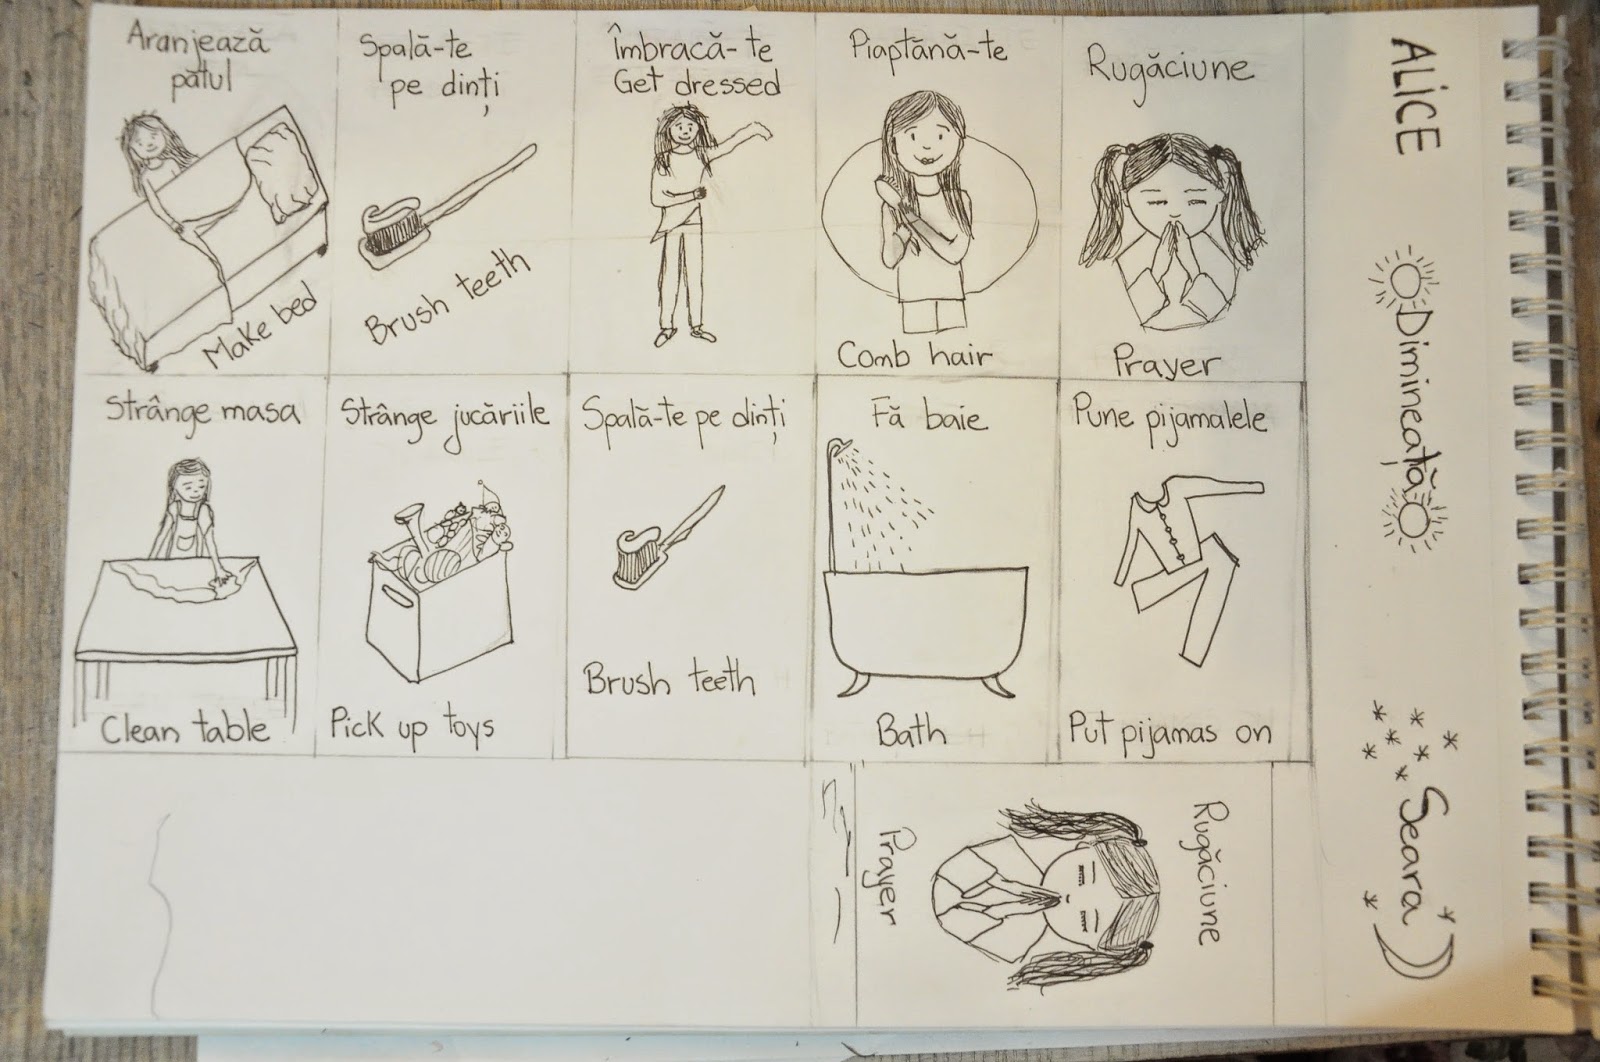 Aranjează
patul
Make bed
Spală-te
pe dinți
Brush teeth
Îmbracă-te
Get dressed
Piaptănă-te
Comb hair
Rugăciune
Prayer
Strânge masa
Clean table
Strânge jucăriile
Pick up toys
Spală-te pe dinți
Brush teeth
Fă baie
Bath
Pune pijamalele
Put pijamas on
Rugăciune
Prayer
ALICE
Dimineață
Seara